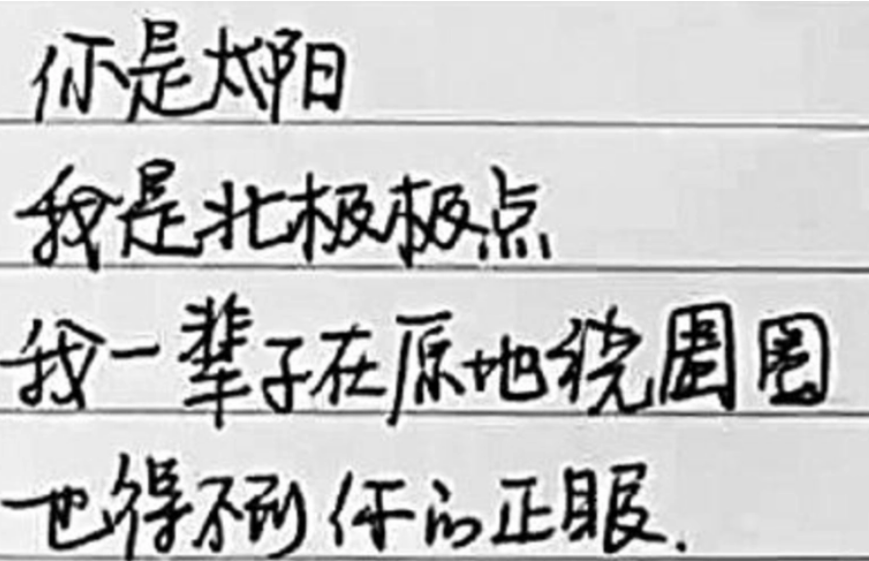 你是太阳
我是北极极点
我一辈子在原地绕圈圈
也得不到你的正眼.